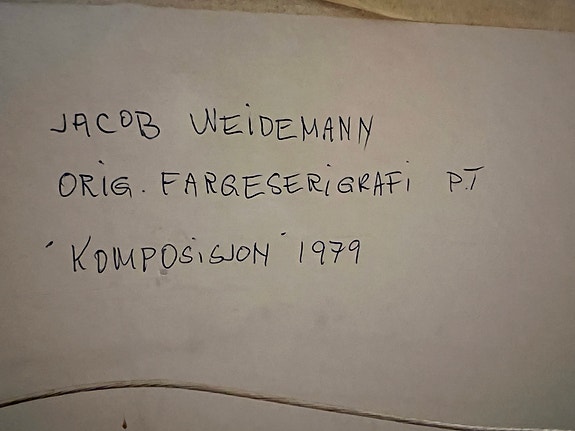 JACOB WEIDEMANN
ORIG. FARGESERIGRAFI P.T
'KOMPOSISJON' 1979